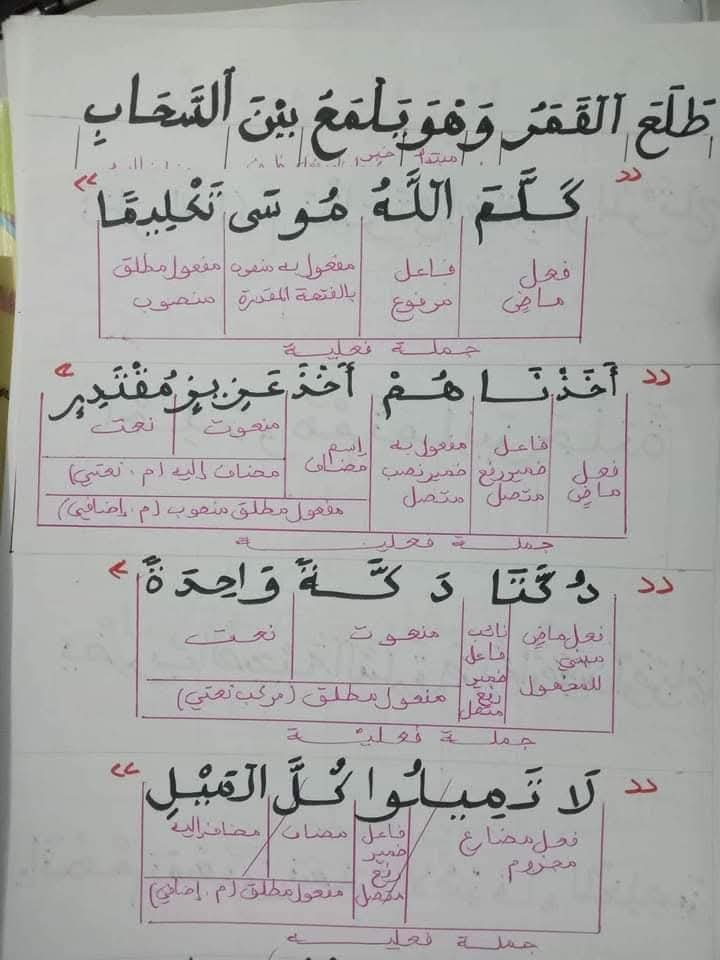 طَلَعَ القَمَرُ وَهْوَ يَلْمَعُ بَيْنَ السَّحَابِ
مبتدأ خبر
«كَلَّمَ اللَّهُ مُوسَى تَكْلِيمًا»
فعل فاعل مفعول به منصوب مفعول مطلق
ماضٍ مرفوع بالفتحة المقدرة منصوب
جملة فعلية
«أَخَذْنَاهُمْ أَخْذَ عَزِيزٍ مُقْتَدِرٍ»
فعل ماضٍ فاعل ضمير رفع متصل مفعول به ضمير نصب متصل إسم مضاف منعوت نعت
مضاف إليه (م. نعتي)
مفعول مطلق منصوب (م. إضافي)
جملة فعلية
«دُكَّتَا دَكَّةً وَاحِدَةً»
فعل ماضٍ مبني للمجهول نائب فاعل ضمير رفع متصل منعوت نعت
مفعول مطلق (مركب نعتي)
جملة فعلية
«لَا تَمِيلُوا كُلَّ المَيْلِ»
فعل مضارع مجزوم فاعل ضمير رفع متصل مضاف مضاف إليه
مفعول مطلق (م. إضافي)
جملة فعلية